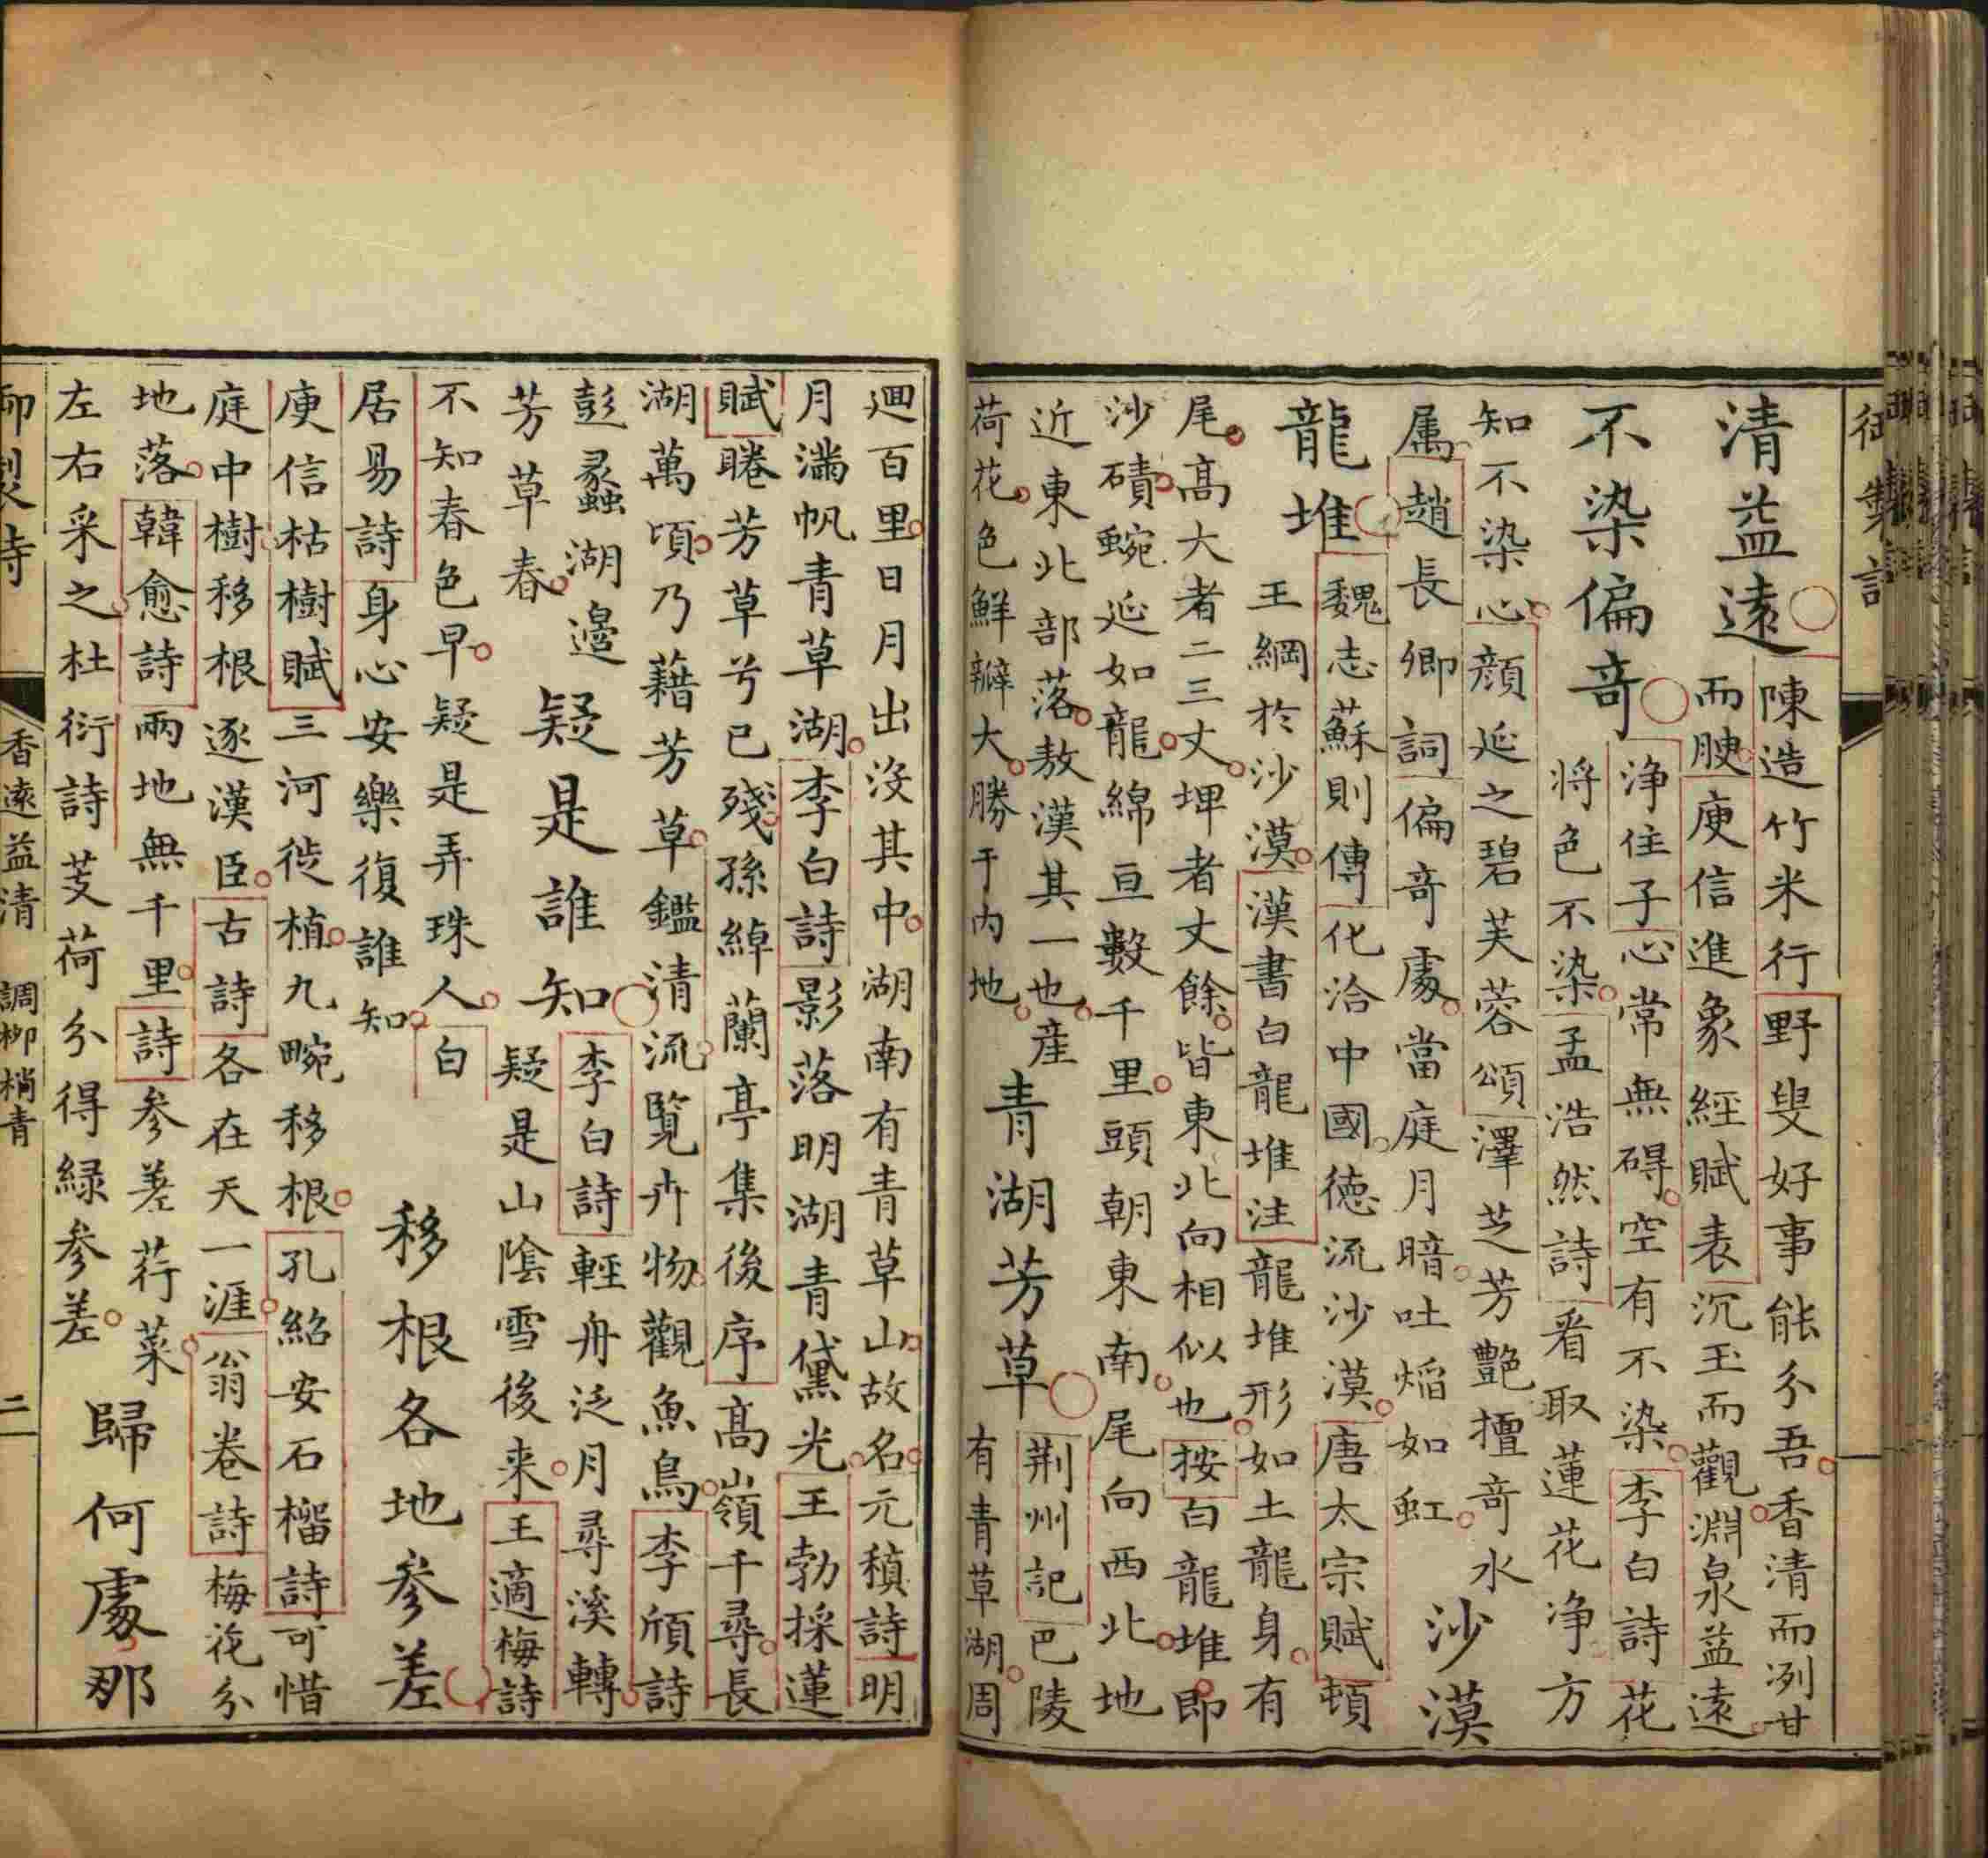 御製詩
清益遠
陳造竹米行野叟好事能分吾香清而冽甘
而腴庾信進象經賦表沉玉而觀淵泉益遠
不染偏奇
净住子心常無碍空有不染李白詩花
将色不染孟浩然詩看取蓮花净方
知不染心顔延之碧芙蓉頌澤芝芳艷擅奇水
属趙長卿詞偏奇處當庭月暗吐焰如虹
沙漠
龍堆
魏志蘇則傳化洽中國德流沙漠唐太宗賦頓
王綱於沙漠漢書白龍堆注龍堆形如土龍身有
尾高大者二三丈埤者丈餘皆東北向相似也按白龍堆即
沙磧蜿延如龍綿亘數千里頭朝東南尾向西北地
近東北部落敖漢其一也産
荷花色鮮瓣大勝于内地
青湖芳草
荆州記巴陵
有青草湖周
迴百里日月出没其中湖南有青草山故名元稹詩明
月滿帆青草湖李白詩影落明湖青黛光王勃採蓮
賦睠芳草兮已殘孫綽蘭亭集後序高嶺千尋長
湖萬頃乃藉芳草鑑清流覽卉物觀魚鳥李頎詩
彭蠡湖邊
芳草春
疑是誰知
李白詩輕舟泛月尋溪轉
疑是山陰雪後来王適梅詩
不知春色早疑是弄珠人白
居易詩身心安樂復誰知
移根各地參差
庾信枯樹賦三河徙植九畹移根孔紹安石榴詩可惜
庭中樹移根逐漢臣古詩各在天一涯翁卷詩梅花分
地落韓愈詩兩地無千里詩參差荇菜
左右采之杜衍詩芰荷分得緑參差
歸何處那
御製詩
香遠益清
調柳梢青
二